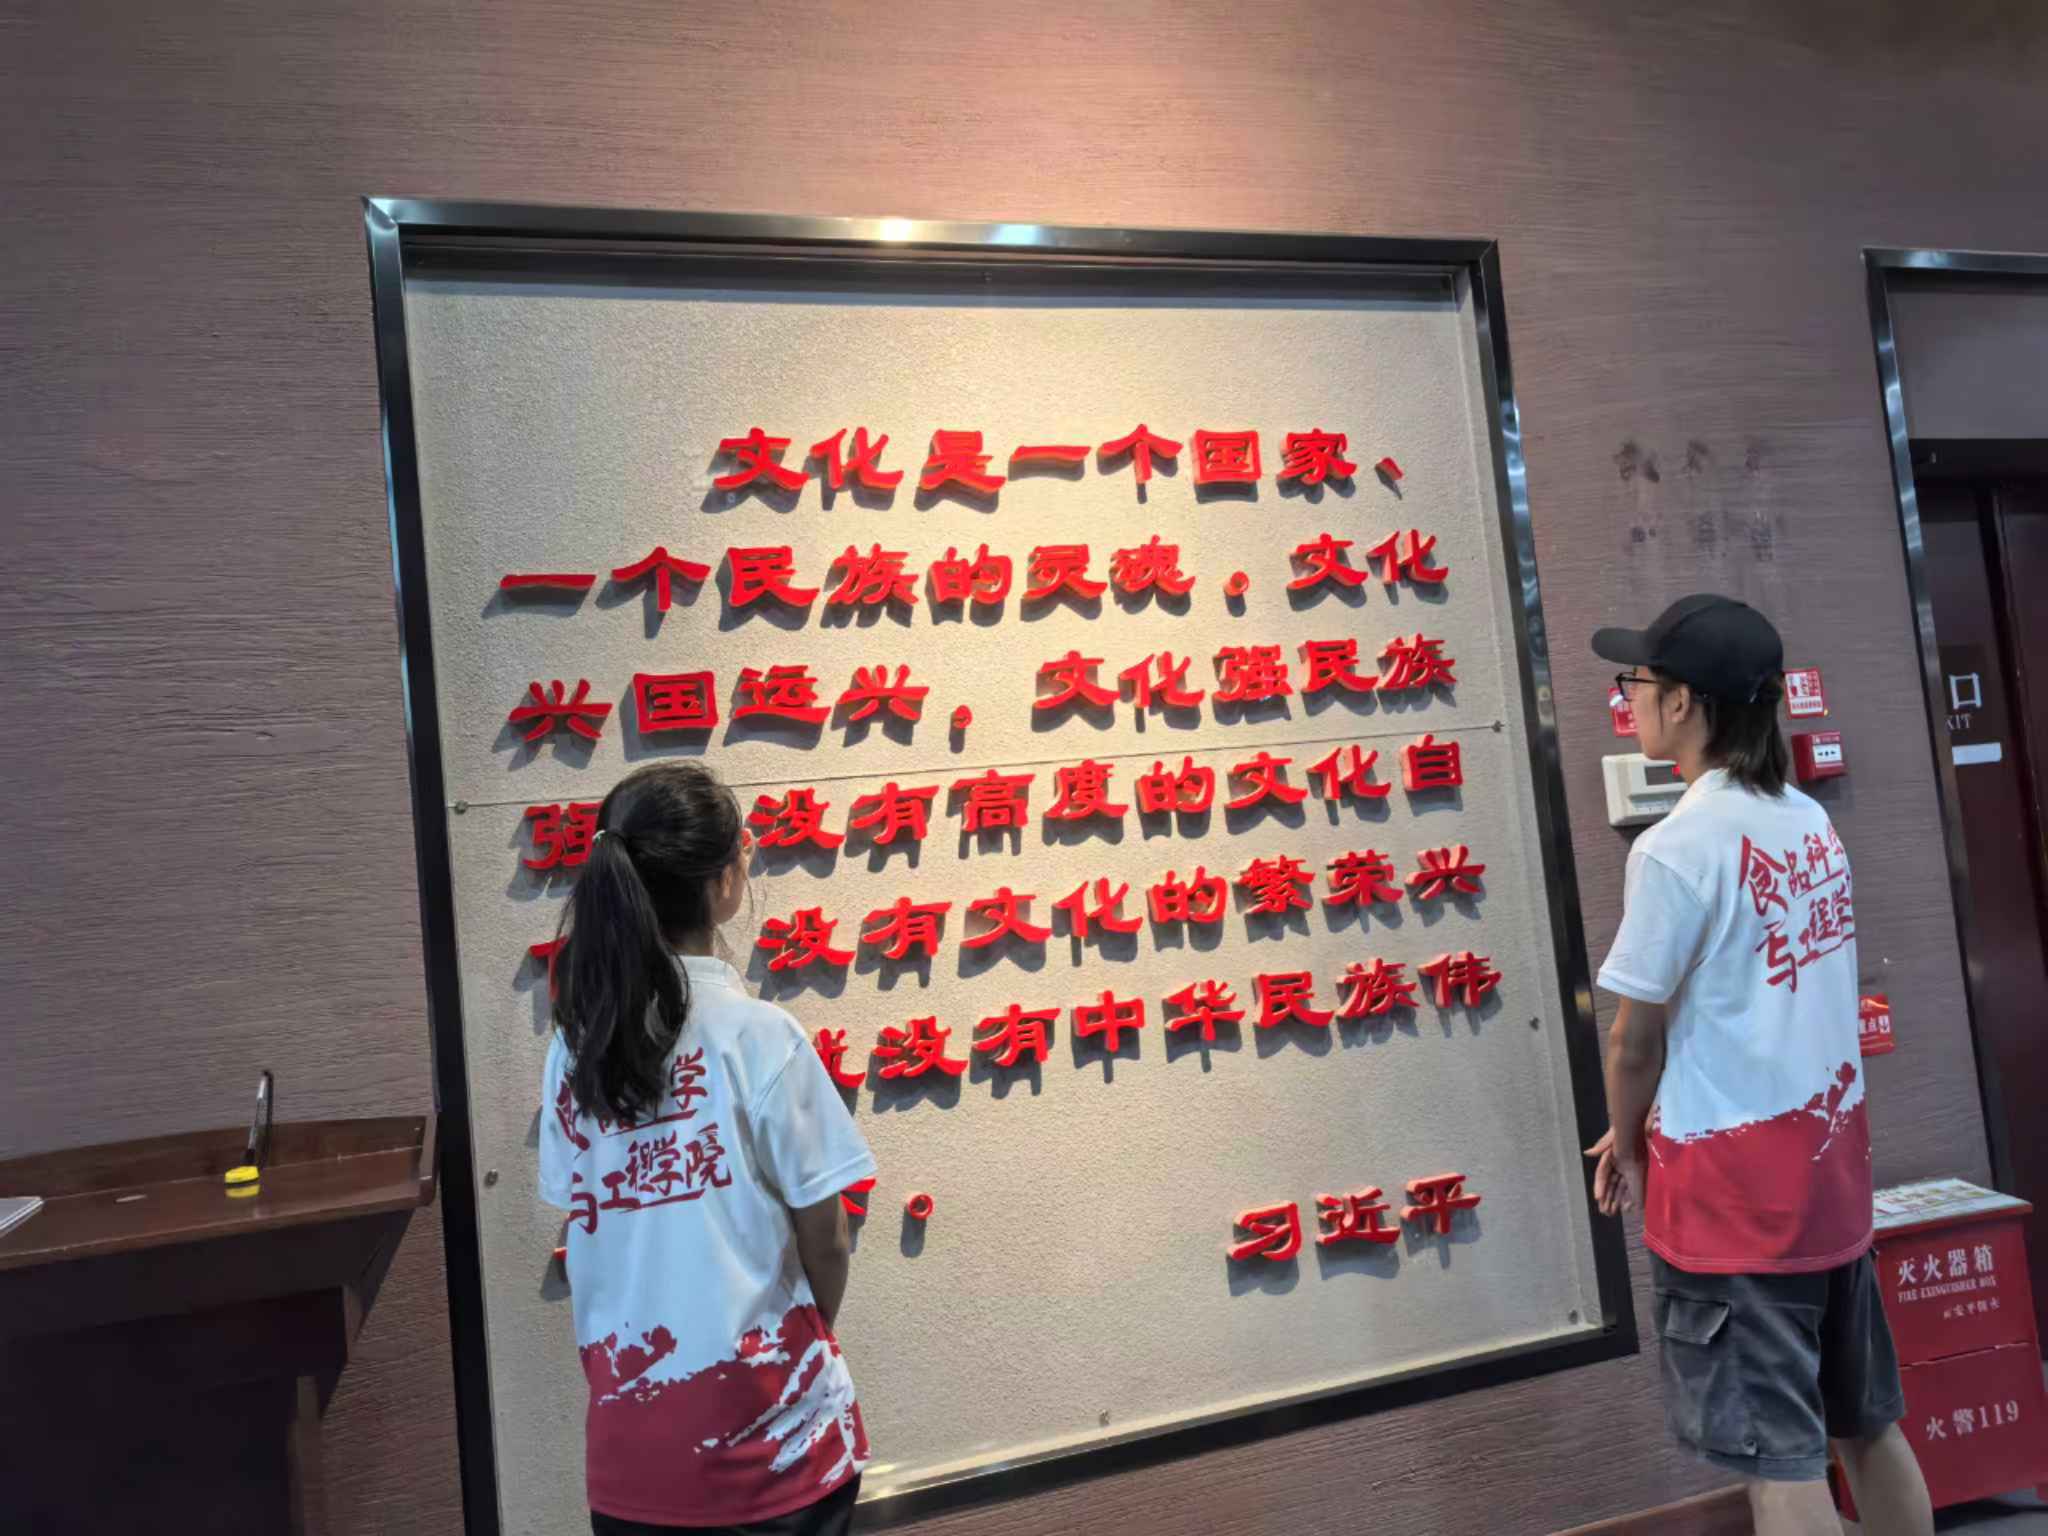 文化是一个国家、
一个民族的灵魂。文化
兴国运兴，文化强民族
强 没有高度的文化自
没有文化的繁荣兴
就没有中华民族伟
。
习近平
学
与工程学院
食品科学
与工程学
口
XIT
点
灭火器箱
FIRE EXINGUISHER BOX
火警119